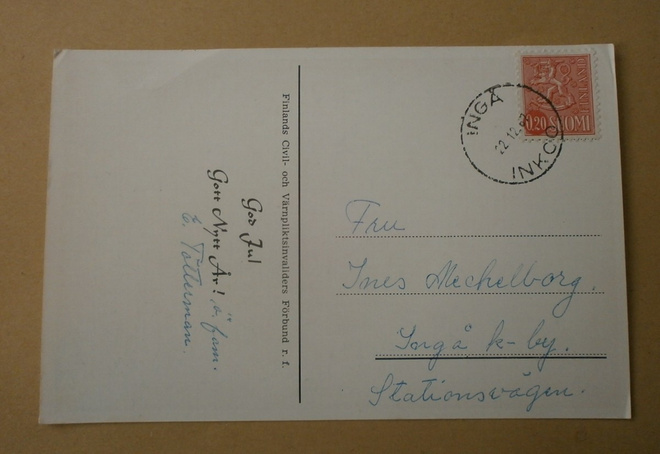 Finlands Civil- och Värnpliktsinvaliders Förbund r. f.
God Jul
Gott Nytt År! ö. fam.
E. Tötterman.
INGÅ
22.12.
INKOO
0.20 SUOMI
Fru
Ines Mechelborg.
Ingå k-by.
Stationsvägen.